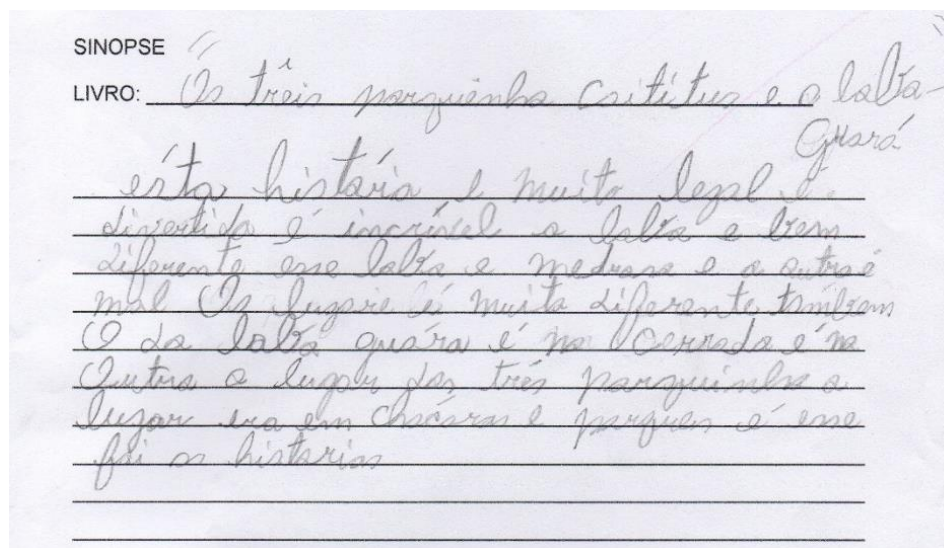 SINOPSE
LIVRO: Os três porquinho Caititus e o lobo-
Guará
ésta história e muito legal é
divertido é incrível o lobo e bem
diferente ese lobo e medroso e o outro é
mal Os lugare é muito diferente também
O do lobo guára é no Cerrado é no
Outro o lugar dos três porquinho o
lugar era em chácara e parques é ese
foi as historias